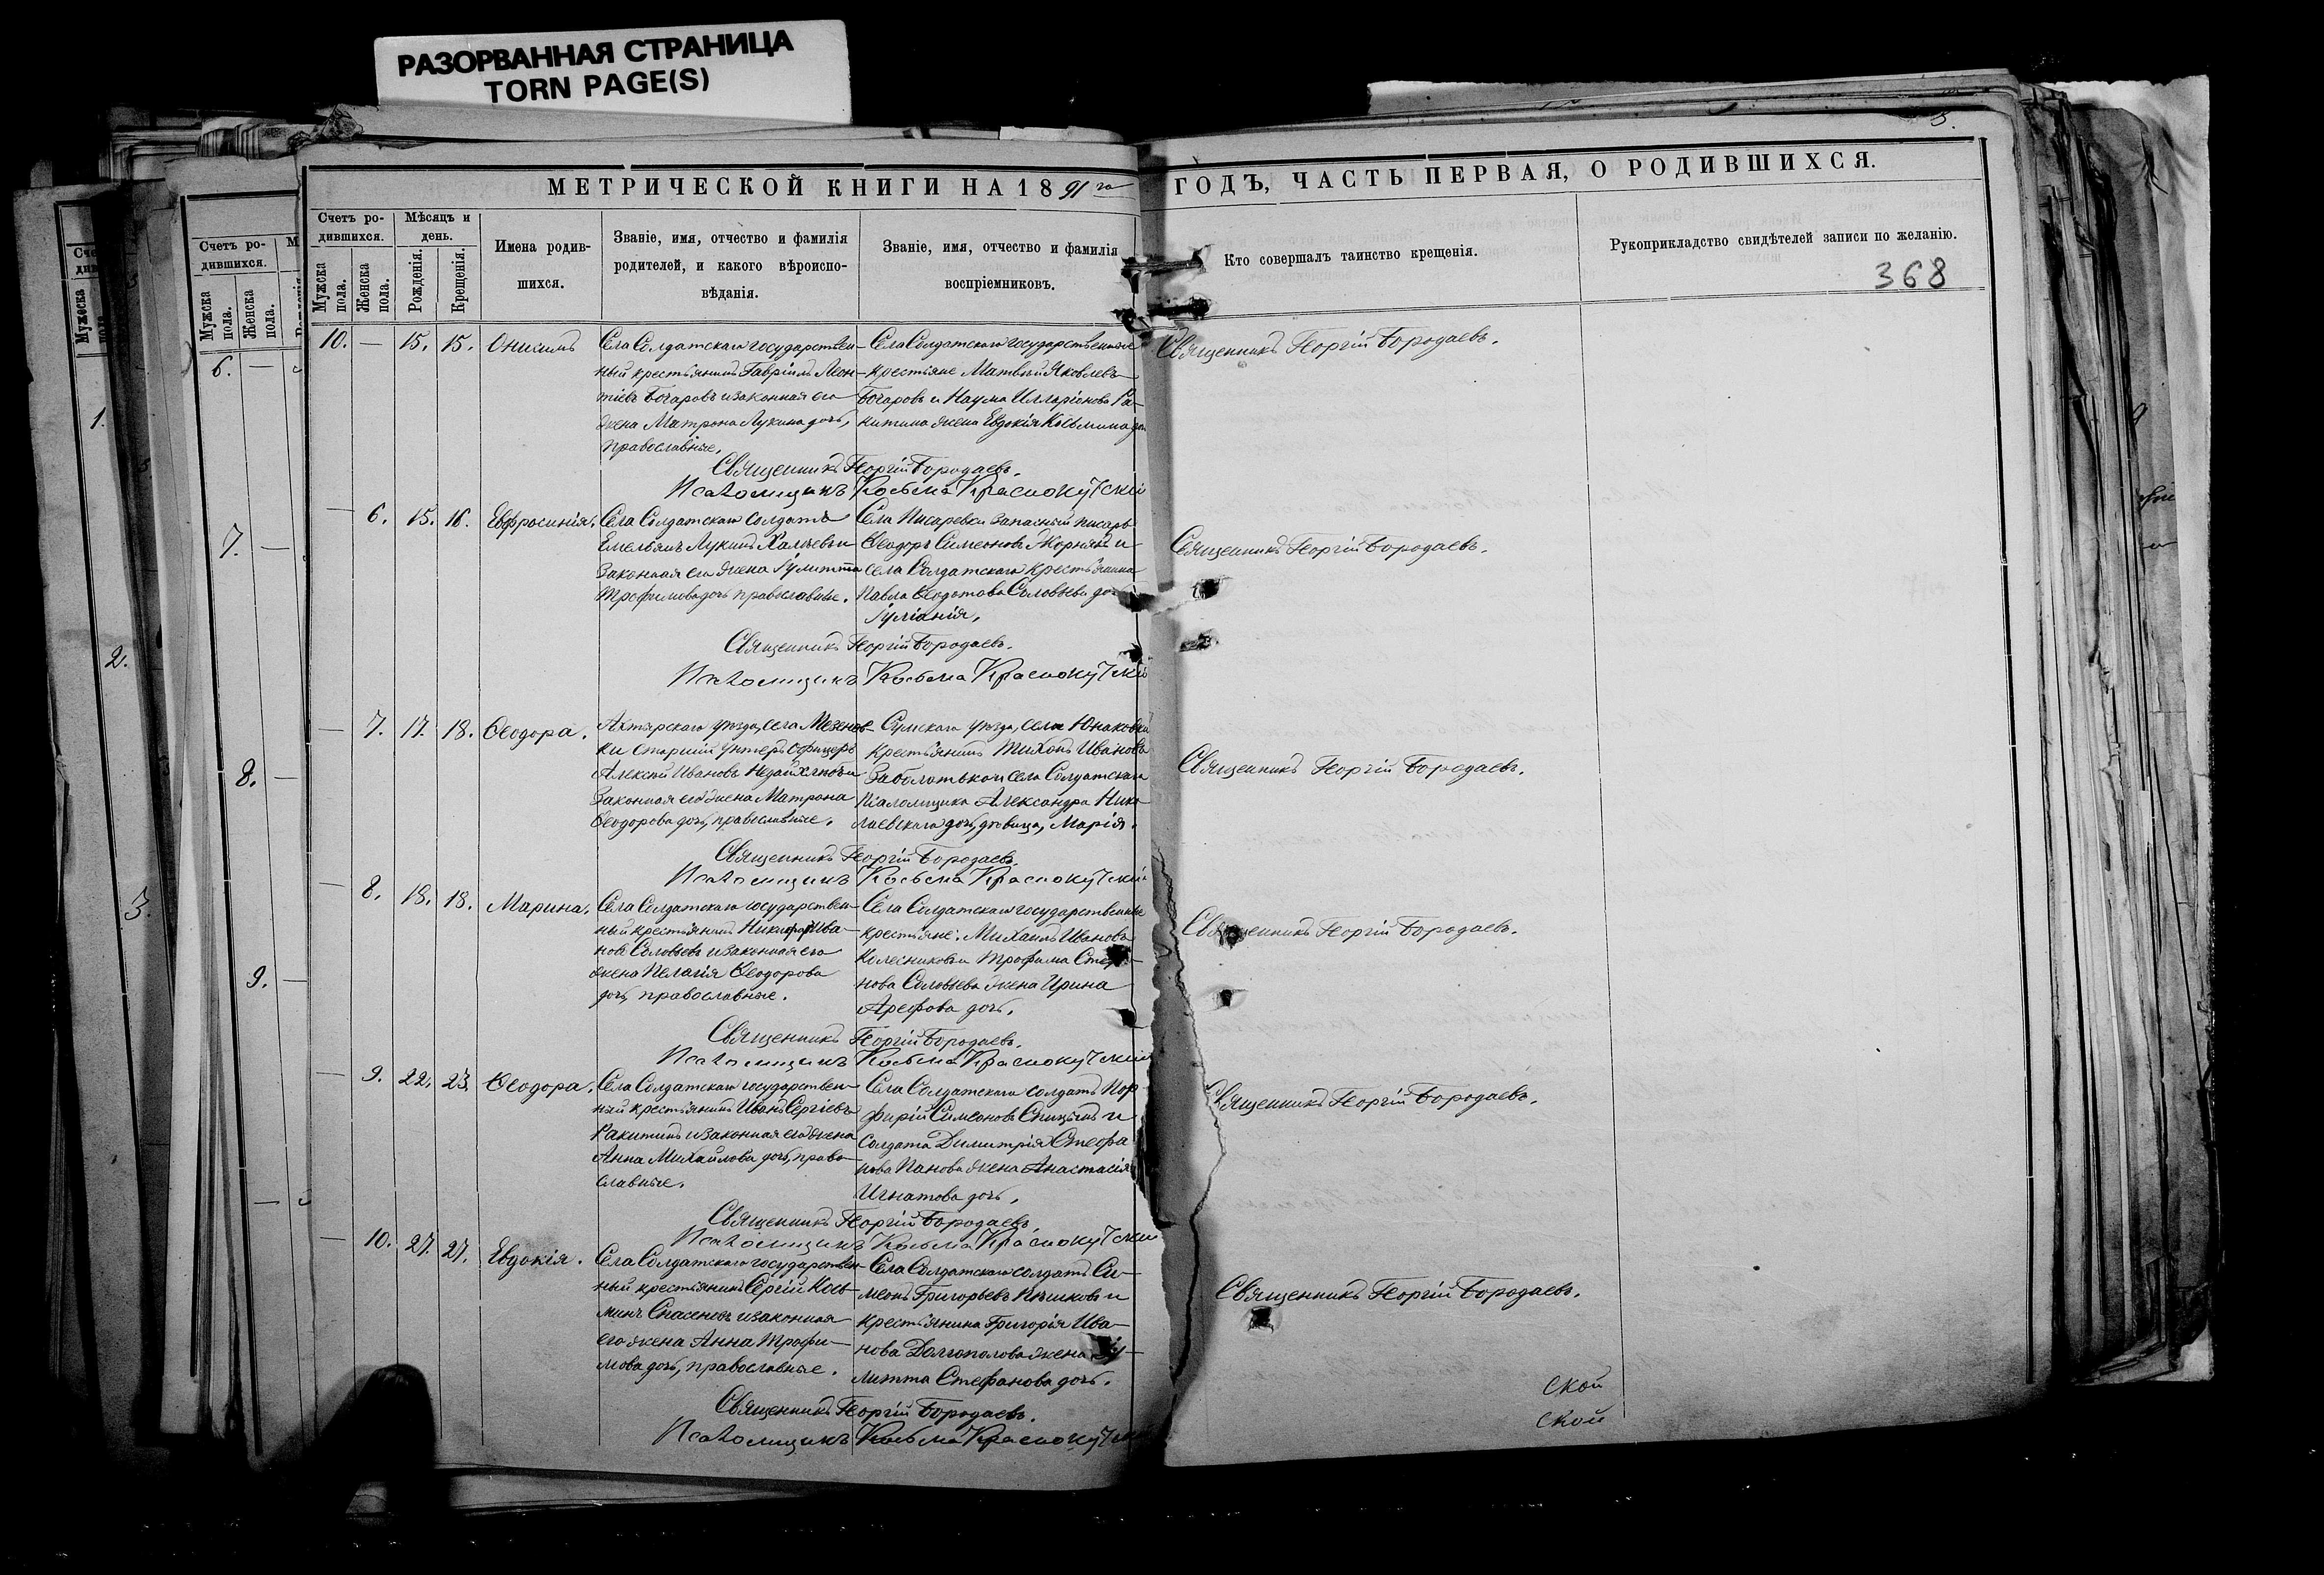 РАЗОРВАННАЯ СТРАНИЦА
TORN PAGE(S)
3.
МЕТРИЧЕСКОЙ КНИГИ НА 1891го ГОДЪ, ЧАСТЬ ПЕРВАЯ, О РОДИВШИХСЯ.
Счетъ ро-
дившихся.
Мужска
пола.
Женска
пола.
Мѣсяцъ и
день.
Рожденія.
Крещенія.
Имена родив-
шихся.
Званіе, имя, отчество и фамилія
родителей, и какого вѣроиспо-
вѣданія.
Званіе, имя, отчество и фамилія
воспріемниковъ.
Кто совершалъ таинство крещенія.
Рукоприкладство свидѣтелей записи по желанію.
368
10. — 15. 15. Онисимъ
Села Солдатскаго государствен-
ный крестьянинъ Гавріилъ Леон-
тіевъ Бочаровъ и законная его
жена Матрона Лукина дочь,
православные.
Села Солдатскаго государственные
крестьяне Матвѣй Яковлевъ
Бочаровъ и Наума Илларіонова Ра-
китина жена Евдокія Косьмина
Священникъ Георгій Бородаевъ.
Священникъ Георгій Бородаевъ.
Псаломщикъ Косьма Краснокутскій
— 6. 15. 16. Евфросинія.
Села Солдатскаго солдатъ
Емельянъ Лукинъ и
законная его жена Іулитта
Трофимова дочь православные.
Села Писаревки запасный писарь
Ѳеодоръ Симеоновъ и
села Солдатскаго крестьянина
Павла Ѳеодотова Соловьева
Іуліанія.
Священникъ Георгій Бородаевъ.
Священникъ Георгій Бородаевъ.
Псаломщикъ Косьма Краснокутскій
— 7. 17. 18. Ѳеодора.
Ахтырскаго уѣзда, села Мезенов-
ки старшій унтеръ офицеръ
Алексѣй Ивановъ и
законная его жена Матрона
Ѳеодорова дочь, православные.
Сумскаго уѣзда, села Юнаковки
крестьянинъ Тихонъ Ивановъ
села Солдатскаго
псаломщика Александра Нико-
лаевскаго дочь, дѣвица, Марія.
Священникъ Георгій Бородаевъ.
Священникъ Георгій Бородаевъ.
Псаломщикъ Косьма Краснокутскій
— 8. 18. 18. Марина.
Села Солдатскаго государствен-
ный крестьянинъ Никифоръ Ива-
новъ Соловьевъ и законная его
жена Пелагія Ѳеодорова
дочь, православные.
Села Солдатскаго государственные
крестьяне: Михаилъ Ивановъ
Колесниковъ и Трофима
нова Соловьева жена Ирина
Арефова дочь.
Священникъ Георгій Бородаевъ.
Священникъ Георгій Бородаевъ.
Псаломщикъ Косьма Краснокутскій
— 9. 22. 23. Ѳеодора.
Села Солдатскаго государствен-
ный крестьянинъ Иванъ Сергіевъ
Ракитинъ и законная его жена
Анна Михайлова дочь, право-
славные.
Села Солдатскаго солдатъ Пор-
фирій Симеоновъ и
солдата Димитрія Стефа
нова Панова жена Анастасія
Игнатова дочь.
Священникъ Георгій Бородаевъ.
Священникъ Георгій Бородаевъ.
Псаломщикъ Косьма Краснокутскій
— 10. 27. 27. Евдокія.
Села Солдатскаго государствен-
ный крестьянинъ Сергій Кось-
минъ Спасеновъ и законная
его жена Анна Трофи-
мова дочь, православные.
Села Солдатскаго солдатъ Си-
меонъ Григорьевъ и
крестьянина Григорія Ива-
нова Долгополова жена Іу-
литта Стефанова дочь.
Священникъ Георгій Бородаевъ.
Священникъ Георгій Бородаевъ.
Псаломщикъ Косьма Краснокутскій
ской
ской
Счетъ ро-
дившихся.
Мужска
пола.
Женска
пола.
6. —
7. —
8. —
9. —
1.
2.
3.